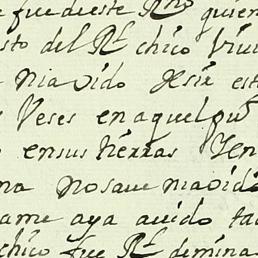 e fue deeste Rno quien
sto del Rl chico Vivi
niaoido desir est
Veses en aquel pu
ensus tierras Yen
na no saue niaoid
ame aya auido ta
chico fue Rl demina